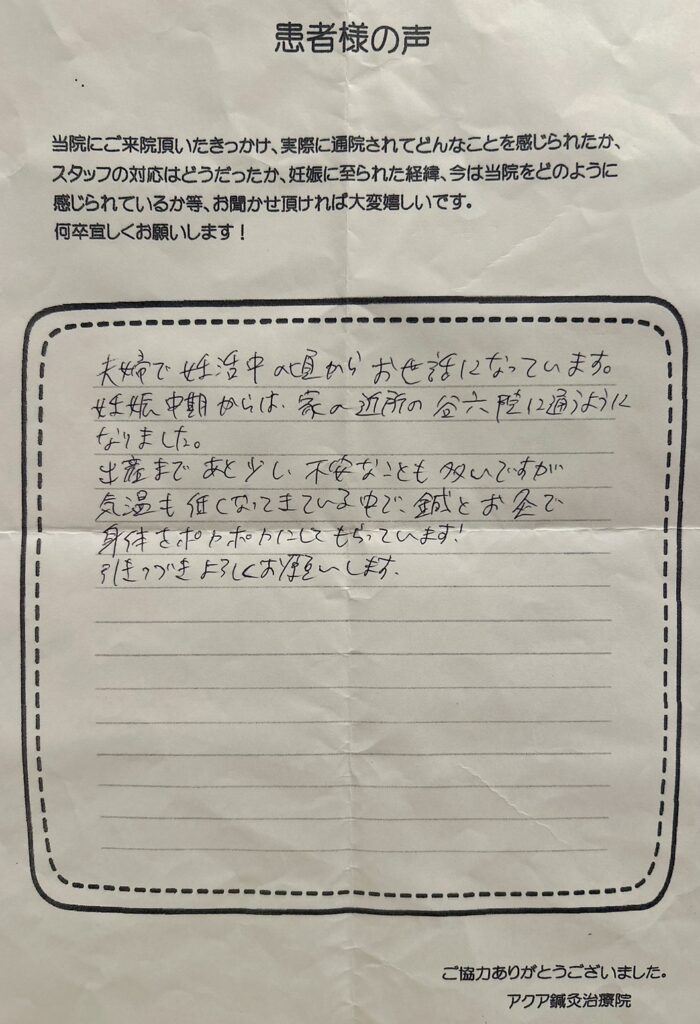 患者様の声
当院にご来院頂いたきっかけ、実際に通院されてどんなことを感じられたか、
スタッフの対応はどうだったか、妊娠に至られた経緯、今は当院をどのように
感じられているか等、お聞かせ頂ければ大変嬉しいです。
何卒宜しくお願いします！
夫婦で妊活中の頃からお世話になっています。
妊娠中期からは、家の近所の谷六院に通うように
なりました。
出産まであと少し、不安なことも多いですが
気温も低くなってきている中で、鍼とお灸で
身体をポカポカにしてもらっています!
引きつづきよろしくお願いします。
ご協力ありがとうございました。
アクア鍼灸治療院